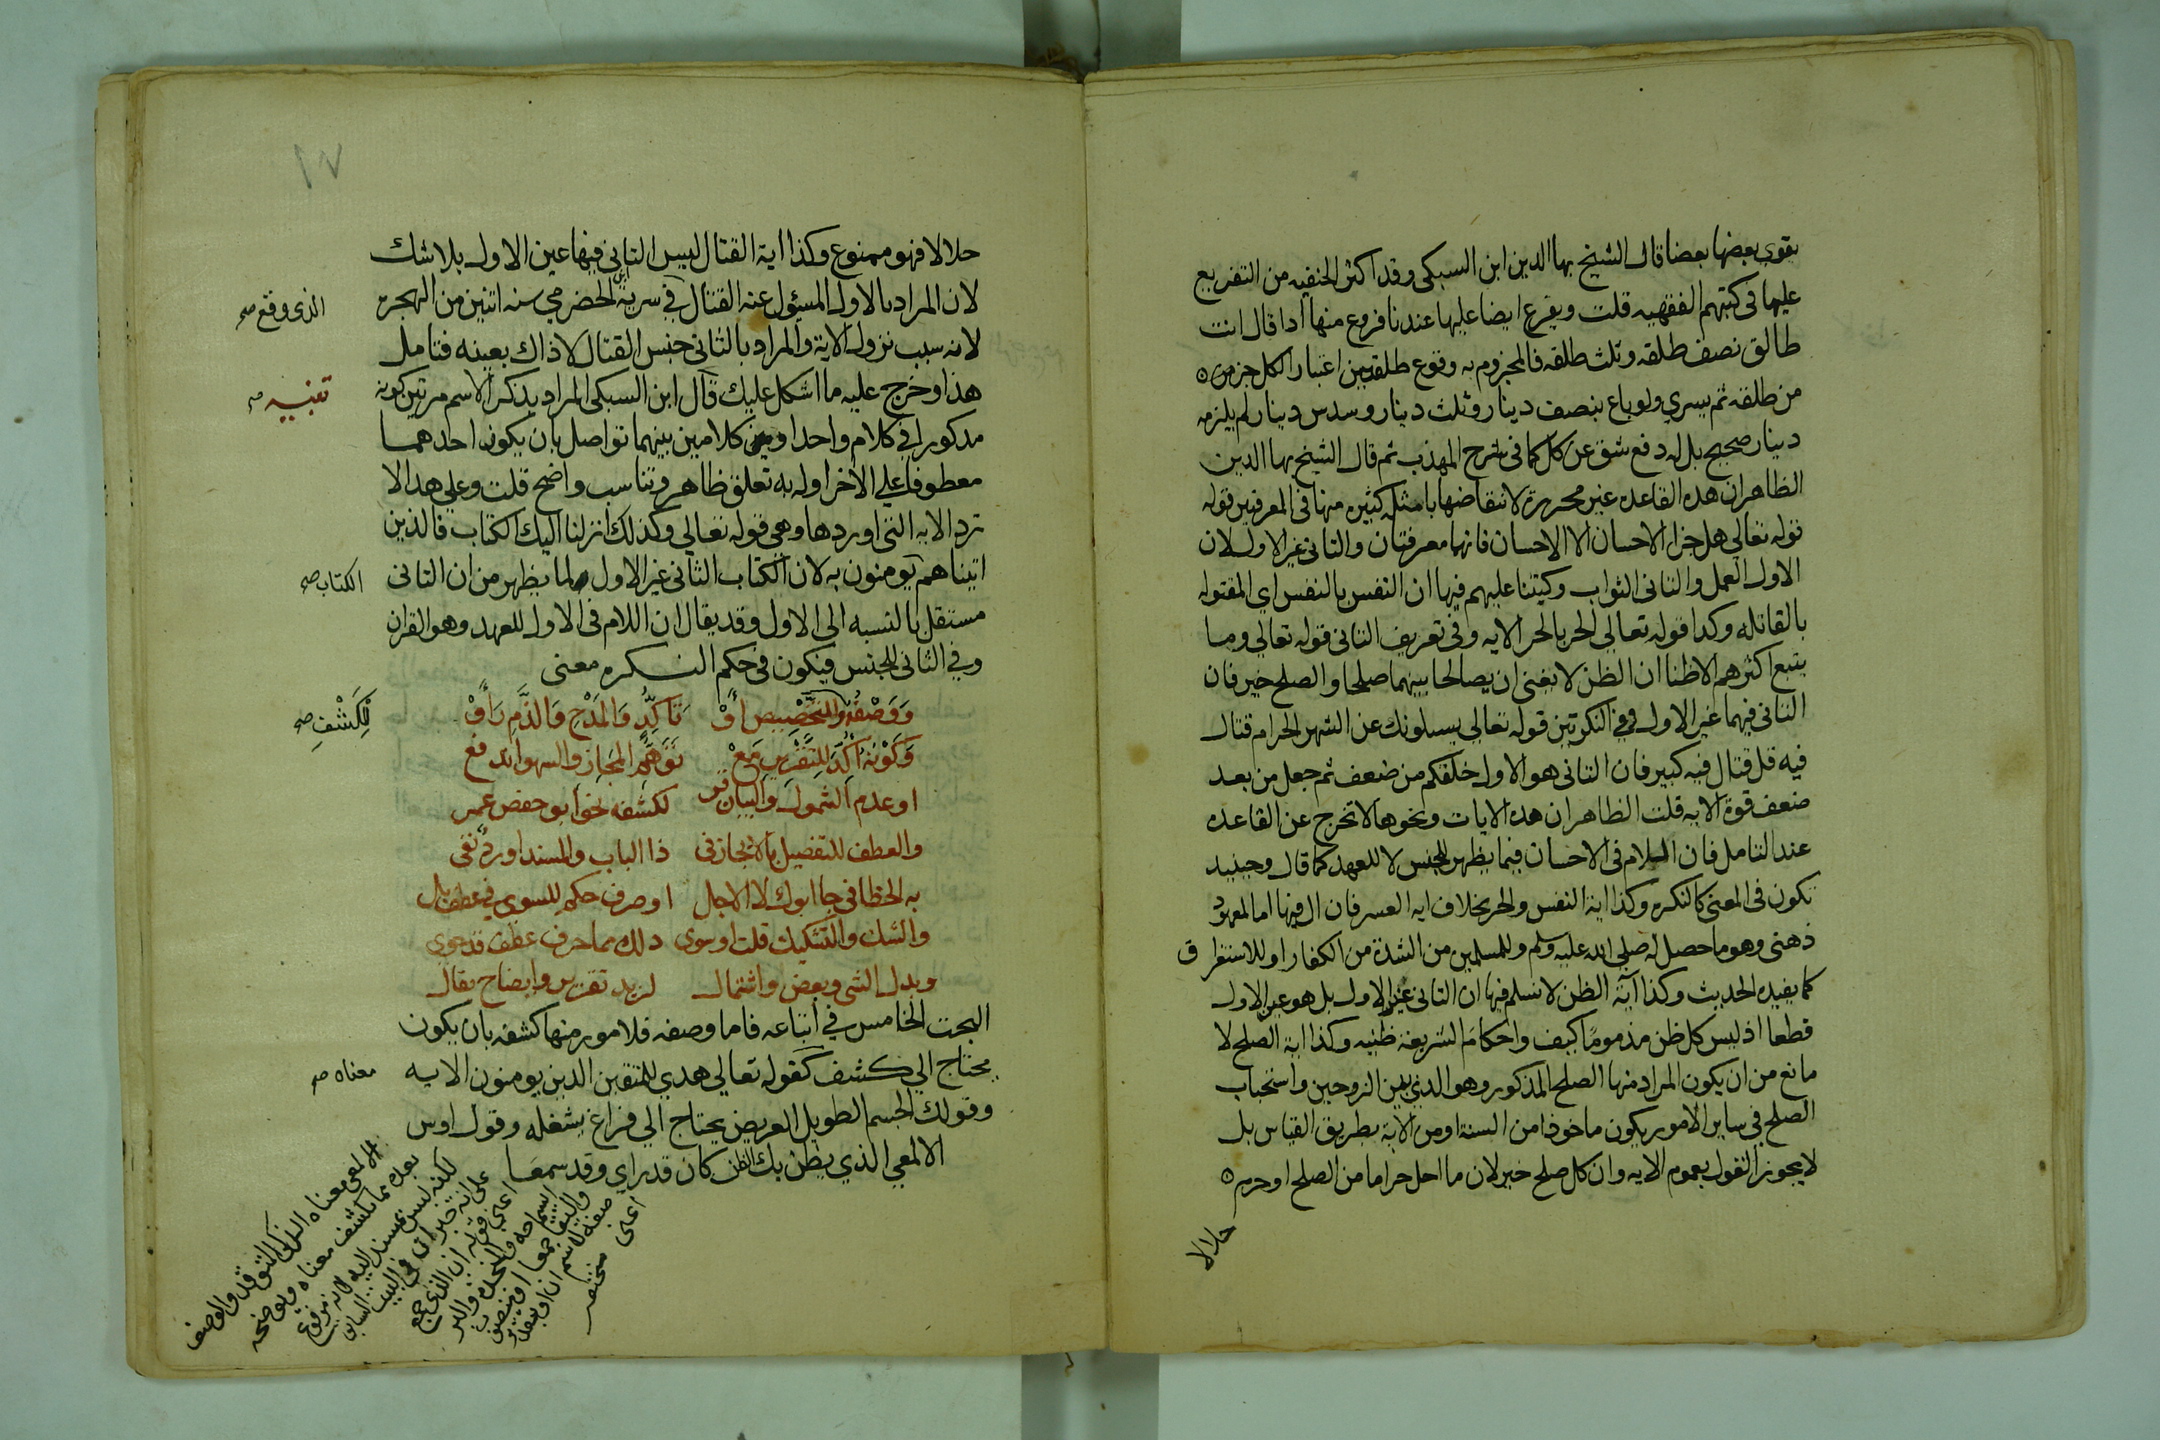 يقوي بعضها بعضا قال الشيخ بها الدين ابن السبكي وقد اكثر الحنفيه من التفريع
عليها في كتبهم الفقهيه قلت ويفرع ايضا عليها عندنا فروع منها اذا قال انت
طالق نصف طلقه وثلث طلقه فالمجزوم به وقوع طلقتين اعتبارا لكل جزء
من طلقه ثم يسري ولو باع بنصف دينار وثلث دينار وسدس دينار لم يلزمه
دينار صحيح بل له دفع شق عن كل كما في شرح المهذب ثم قال الشيخ بها الدين
الظاهر ان هذه القاعده غير محررة لانتقاضها بامثله كثيره منها في المعرفتين قوله
قوله تعالي هل جزا الاحسان الا الاحسان فانهما معرفتان والثاني غير الاول لان
الاول العمل والثاني الثواب وكتبنا عليهم فيها ان النفس بالنفس اي المقتوله
بالقاتله وكذا قوله تعالي الحر بالحر الايه وفي تعريف الثاني قوله تعالي وما
يتبع اكثرهم الا ظنا ان الظن لا يغني ان يصالحا بينهما صلحا والصلح خير فان
الثاني فيهما غير الاول وفي النكرتين قوله تعالي يسلونك عن الشهر الحرام قتال
فيه قل قتال فيه كبير فان الثاني هو الاول خلقكم من ضعف ثم جعل من بعد
ضعف قوة الايه قلت الظاهر ان هذه الايات ونحوها لا تخرج عن القاعده
عند التامل فان اللام في الاحسان فيما يظهر للجنس لا للعهد كما قال وحينيد
تكون في المعنى كالنكره وكذا اية النفس والحر بخلاف ايه العسر فان ال فيها اما لمعهود
ذهني وهو ما حصل له صلي الله عليه وسلم وللمسلمين من الشدة من الكفار او للاستغراق
كما يفيده الحديث وكذا آية الظن لا نسلم فيها ان الثاني غير الاول بل هو عين الاول
قطعا اذ ليس كل ظن مذموما كيف واحكام الشريعة ظنيه وكذا اية الصلح لا
مانع من ان يكون المراد منها الصلح المذكور وهو الذي بين الزوجين واستحباب
الصلح في ساير الامور يكون ماخوذا من السنة او من الاية بطريق القياس بل
لا يجوز القول بعموم الايه وان كل صلح خير لان ما احل حراما من الصلح او حرم
حلالا
حلالا فهو ممنوع وكذا اية القتال ليس الثاني فيها عين الاول بلا شك
لان المراد بالاول المسئول عنه القتال في سرية ابن الحضرمي سنه اثنين من الهجره
الذي وقع صح
لانه سبب نزول الاية والمراد بالثاني جنس القتال لا ذاك بعينه فتامل
هذا وخرج عليه ما اشكل عليك قال ابن السبكي المراد بذكر الاسم مرتين كونه
تنبيه صح
مذكورا في كلام واحد او كلامين بينهما تواصل بان يكون احدهما
معطوفا علي الاخر اوله به تعلق ظاهر وتناسب واضح قلت وعلي هذا لا
ترد الايه التي اوردها وهي قوله تعالي وكذلك انزلنا اليك الكتاب فالذين
اتيناهم يومنون به لان الكتاب الثاني غير الاول لما يظهر من ان الثاني
الكتاب صح
مستقل بالنسبه الى الاول وقد يقال ان اللام في الاول للعهد وهو القران
وفي الثاني للجنس فيكون في حكم النكره معنى
ووصفه والتخصيص او تاكد والمدح والذم راوا
للكشف صح
وكونه اكد للتقرير مع توهم المجاز والسهو اندفع
او عدم الشمول والبيان قر لكشفه نحو ابو حفص عمر
والعطف للتفصيل بالايجاز في ذا الباب والمسند او رد نفي
به الخطا في جا ابوك لا الاجل او صرف حكم للسوي في عطف بل
والشك والتشكيك قلت او سوى ذلك مما حرف عطف قد حوي
وبدل الشي وبعض واشتمال لزيد تقرير وايضاح يقال
البحث الخامس في اتباعه فاما وصفه فلامور منها كشفه بان يكون
يحتاج الي كشف كقوله تعالي هدي للمتقين الذين يومنون الايه
معناه صح
وقولك الجسم الطويل العريض يحتاج الي فراغ يشغله وقول اوس
الالمعي الذي يظن بك الظن كان قد راي وقد سمعا
الالمعي معناه الذكي المتوقد والوصف
بعده مما يكشف معناه ويوضحه
لكنه ليس بمسند اليه لانه مرفوع
على انه خبر ان في البيت السابق
اعني قوله ان الذي جمع
السماحة والنجدة والبر
والتقا جمعا او منصوب
صفة لاسم ان او بتقدير
اعني مختصر